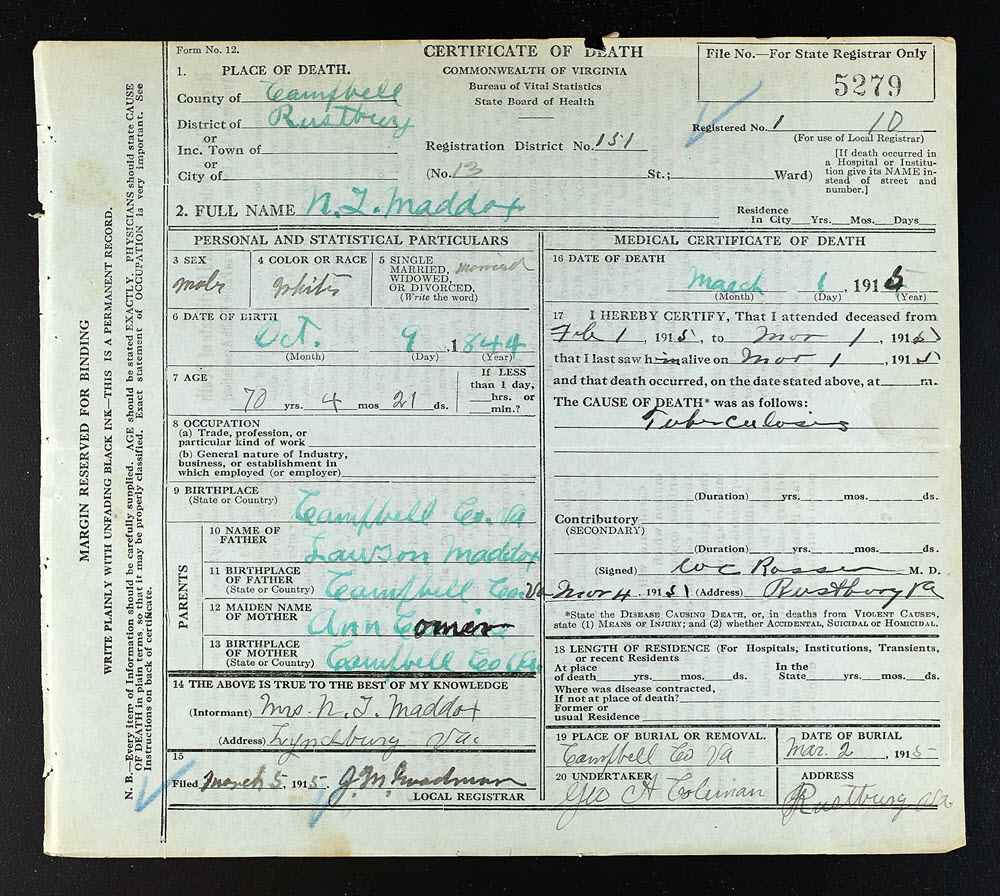 Form No. 12.
CERTIFICATE OF DEATH
COMMONWEALTH OF VIRGINIA
Bureau of Vital Statistics
State Board of Health
File No.—For State Registrar Only
5279
1. PLACE OF DEATH.
County of Campbell
District of Rustburg
or
Inc. Town of
or
City of
Registration District No. 151
(No. 13 St.; Ward)
Registered No. 1 10
(For use of Local Registrar)
[If death occurred in a Hospital or Institution give its NAME instead of street and number.]
2. FULL NAME N. T. Maddox
Residence In City Yrs. Mos. Days
PERSONAL AND STATISTICAL PARTICULARS
3 SEX
male
4 COLOR OR RACE
White
5 SINGLE MARRIED, WIDOWED, OR DIVORCED. (Write the word)
married
6 DATE OF BIRTH
Oct. 9 1844
(Month) (Day) (Year)
7 AGE
70 yrs. 4 mos 21 ds.
If LESS than 1 day, hrs. or min.?
8 OCCUPATION
(a) Trade, profession, or particular kind of work
(b) General nature of Industry, business, or establishment in which employed (or employer)
9 BIRTHPLACE
(State or Country)
Campbell Co. Va
PARENTS
10 NAME OF FATHER
Lawson Maddox
11 BIRTHPLACE OF FATHER
(State or Country)
Campbell Co. Va
12 MAIDEN NAME OF MOTHER
Ann
13 BIRTHPLACE OF MOTHER
(State or Country)
Campbell Co Va
14 THE ABOVE IS TRUE TO THE BEST OF MY KNOWLEDGE
(Informant) Mrs. N. T. Maddox
(Address) Lynchburg Va.
15
Filed March 5, 1915, J. M.
LOCAL REGISTRAR
MEDICAL CERTIFICATE OF DEATH
16 DATE OF DEATH
March 1, 1915
(Month) (Day) (Year)
17 I HEREBY CERTIFY, That I attended deceased from
Feb 1, 1915, to Mar 1, 1915
that I last saw him alive on Mar 1, 1915
and that death occurred, on the date stated above, at m.
The CAUSE OF DEATH* was as follows:
Tuberculosis
(Duration) yrs. mos. ds.
Contributory
(SECONDARY)
(Duration) yrs. mos. ds.
(Signed) W C Rosser M. D.
Mar 4, 191 (Address) Rustburg Va
*State the DISEASE CAUSING DEATH, or, in deaths from VIOLENT CAUSES,
state (1) MEANS OF INJURY; and (2) whether ACCIDENTAL, SUICIDAL or HOMICIDAL.
18 LENGTH OF RESIDENCE (For Hospitals, Institutions, Transients,
or recent Residents
At place of death yrs. mos. ds. In the State yrs. mos. ds.
Where was disease contracted,
If not at place of death?
Former or
usual Residence
19 PLACE OF BURIAL OR REMOVAL.
Campbell Co Va
DATE OF BURIAL
Mar. 2, 1915
20 UNDERTAKER
Geo A Coleman
ADDRESS
Rustburg Va.
MARGIN RESERVED FOR BINDING
WRITE PLAINLY WITH UNFADING BLACK INK—THIS IS A PERMANENT RECORD.
N. B.—Every item of information should be carefully supplied. AGE should be stated EXACTLY. PHYSICIANS should state CAUSE
OF DEATH in plain terms, so that it may be properly classified. Exact statement of OCCUPATION is very important. See
Instructions on back of certificate.